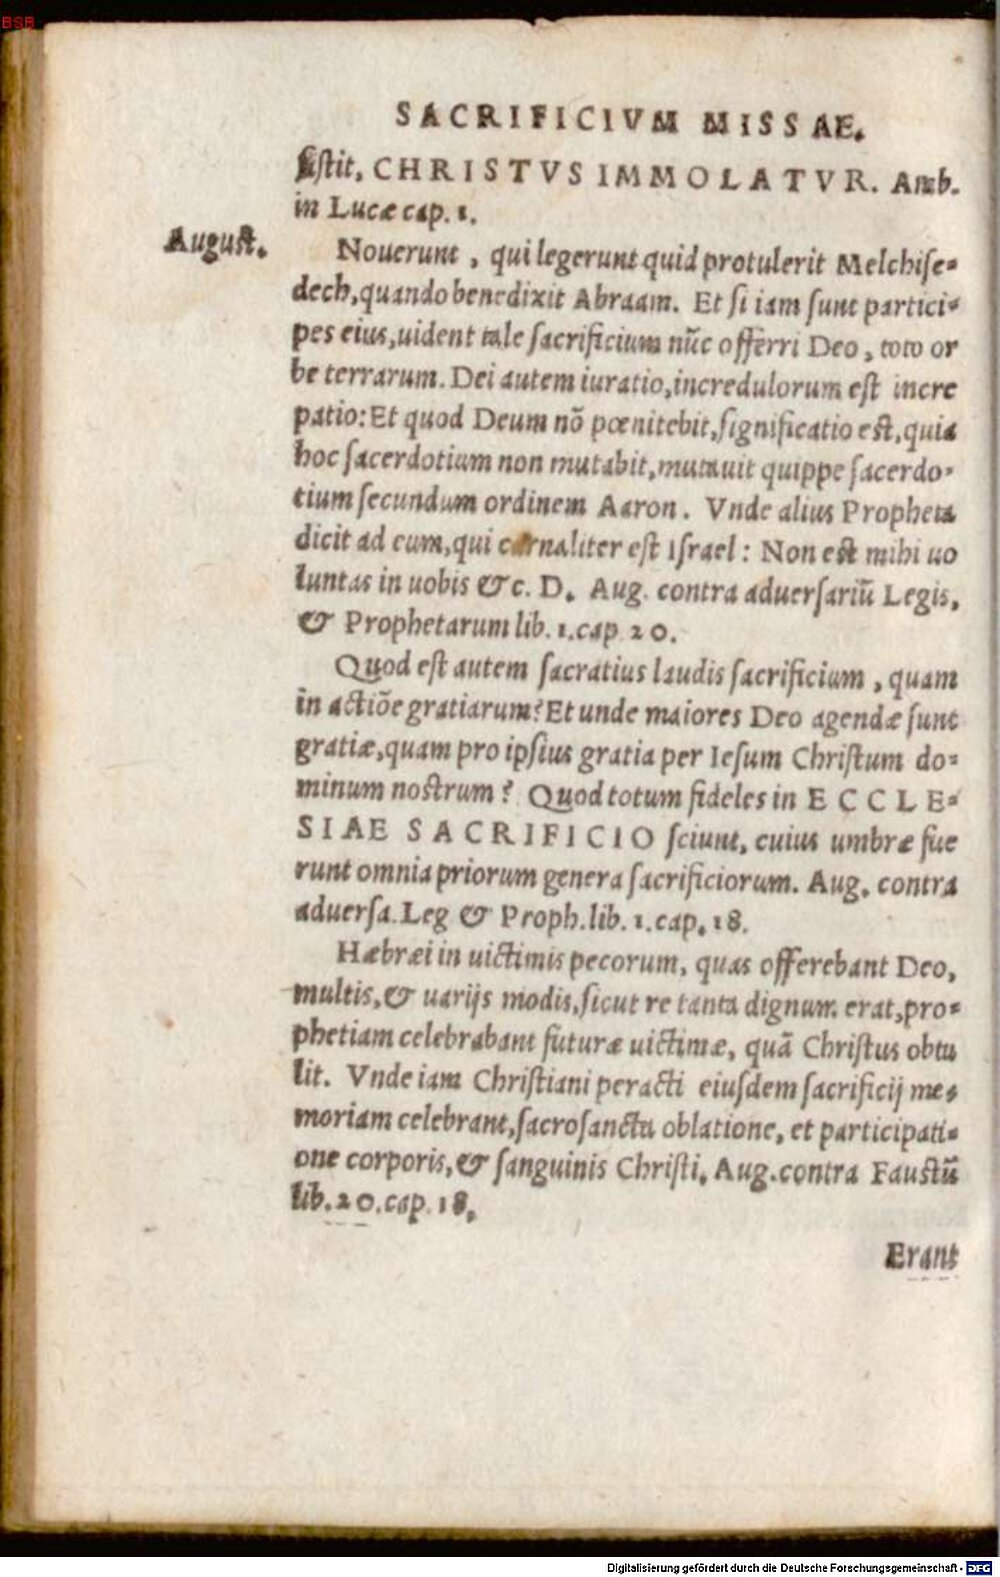 BSB
SACRIFICIVM MISSAE.
sistit, CHRISTVS IMMOLATVR. Amb.
in Lucæ cap. 1.
August.
Nouerunt, qui legerunt quid protulerit Melchise=
dech, quando benedixit Abraam. Et si iam sunt partici=
pes eius, uident tale sacrificium nūc offerri Deo, toto or
be terrarum. Dei autem iuratio, incredulorum est incre
patio: Et quod Deum nō pœnitebit, significatio est, quia
hoc sacerdotium non mutabit, mutauit quippe sacerdo=
tium secundum ordinem Aaron. Vnde alius Propheta
dicit ad eum, qui carnaliter est Israel: Non est mihi uo
luntas in uobis &c. D. Aug. contra aduersariū Legis,
& Prophetarum lib. 1. cap. 20.
Quod est autem sacratius laudis sacrificium, quam
in actiōe gratiarum? Et unde maiores Deo agendæ sunt
gratiæ, quam pro ipsius gratia per Iesum Christum do=
minum nostrum? Quod totum fideles in ECCLE=
SIAE SACRIFICIO sciunt, cuius umbræ fue
runt omnia priorum genera sacrificiorum. Aug. contra
aduersa. Leg & Proph. lib. 1. cap. 18.
Hæbræi in uictimis pecorum, quas offerebant Deo,
multis, & uarijs modis, sicut re tanta dignum erat, pro=
phetiam celebrabant futuræ uictimæ, quā Christus obtu
lit. Vnde iam Christiani peracti eiusdem sacrificij me=
moriam celebrant, sacrosancta oblatione, et participati=
one corporis, & sanguinis Christi. Aug. contra Faustū
lib. 20. cap. 18.
Erant
Digitalisierung gefördert durch die Deutsche Forschungsgemeinschaft - DFG